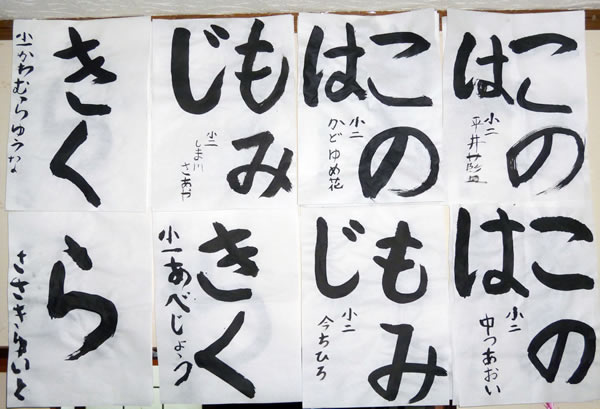 この
は
小二
平井藍
この
は
小二
かどゆめ花
もみ
じ
小二
しま川
さあや
きく
小一かわむらゆうな
この
は
小二
中つあおい
もみ
じ
小二
今ちひろ
きく
小一あべじょう
ら
ささきゆいと